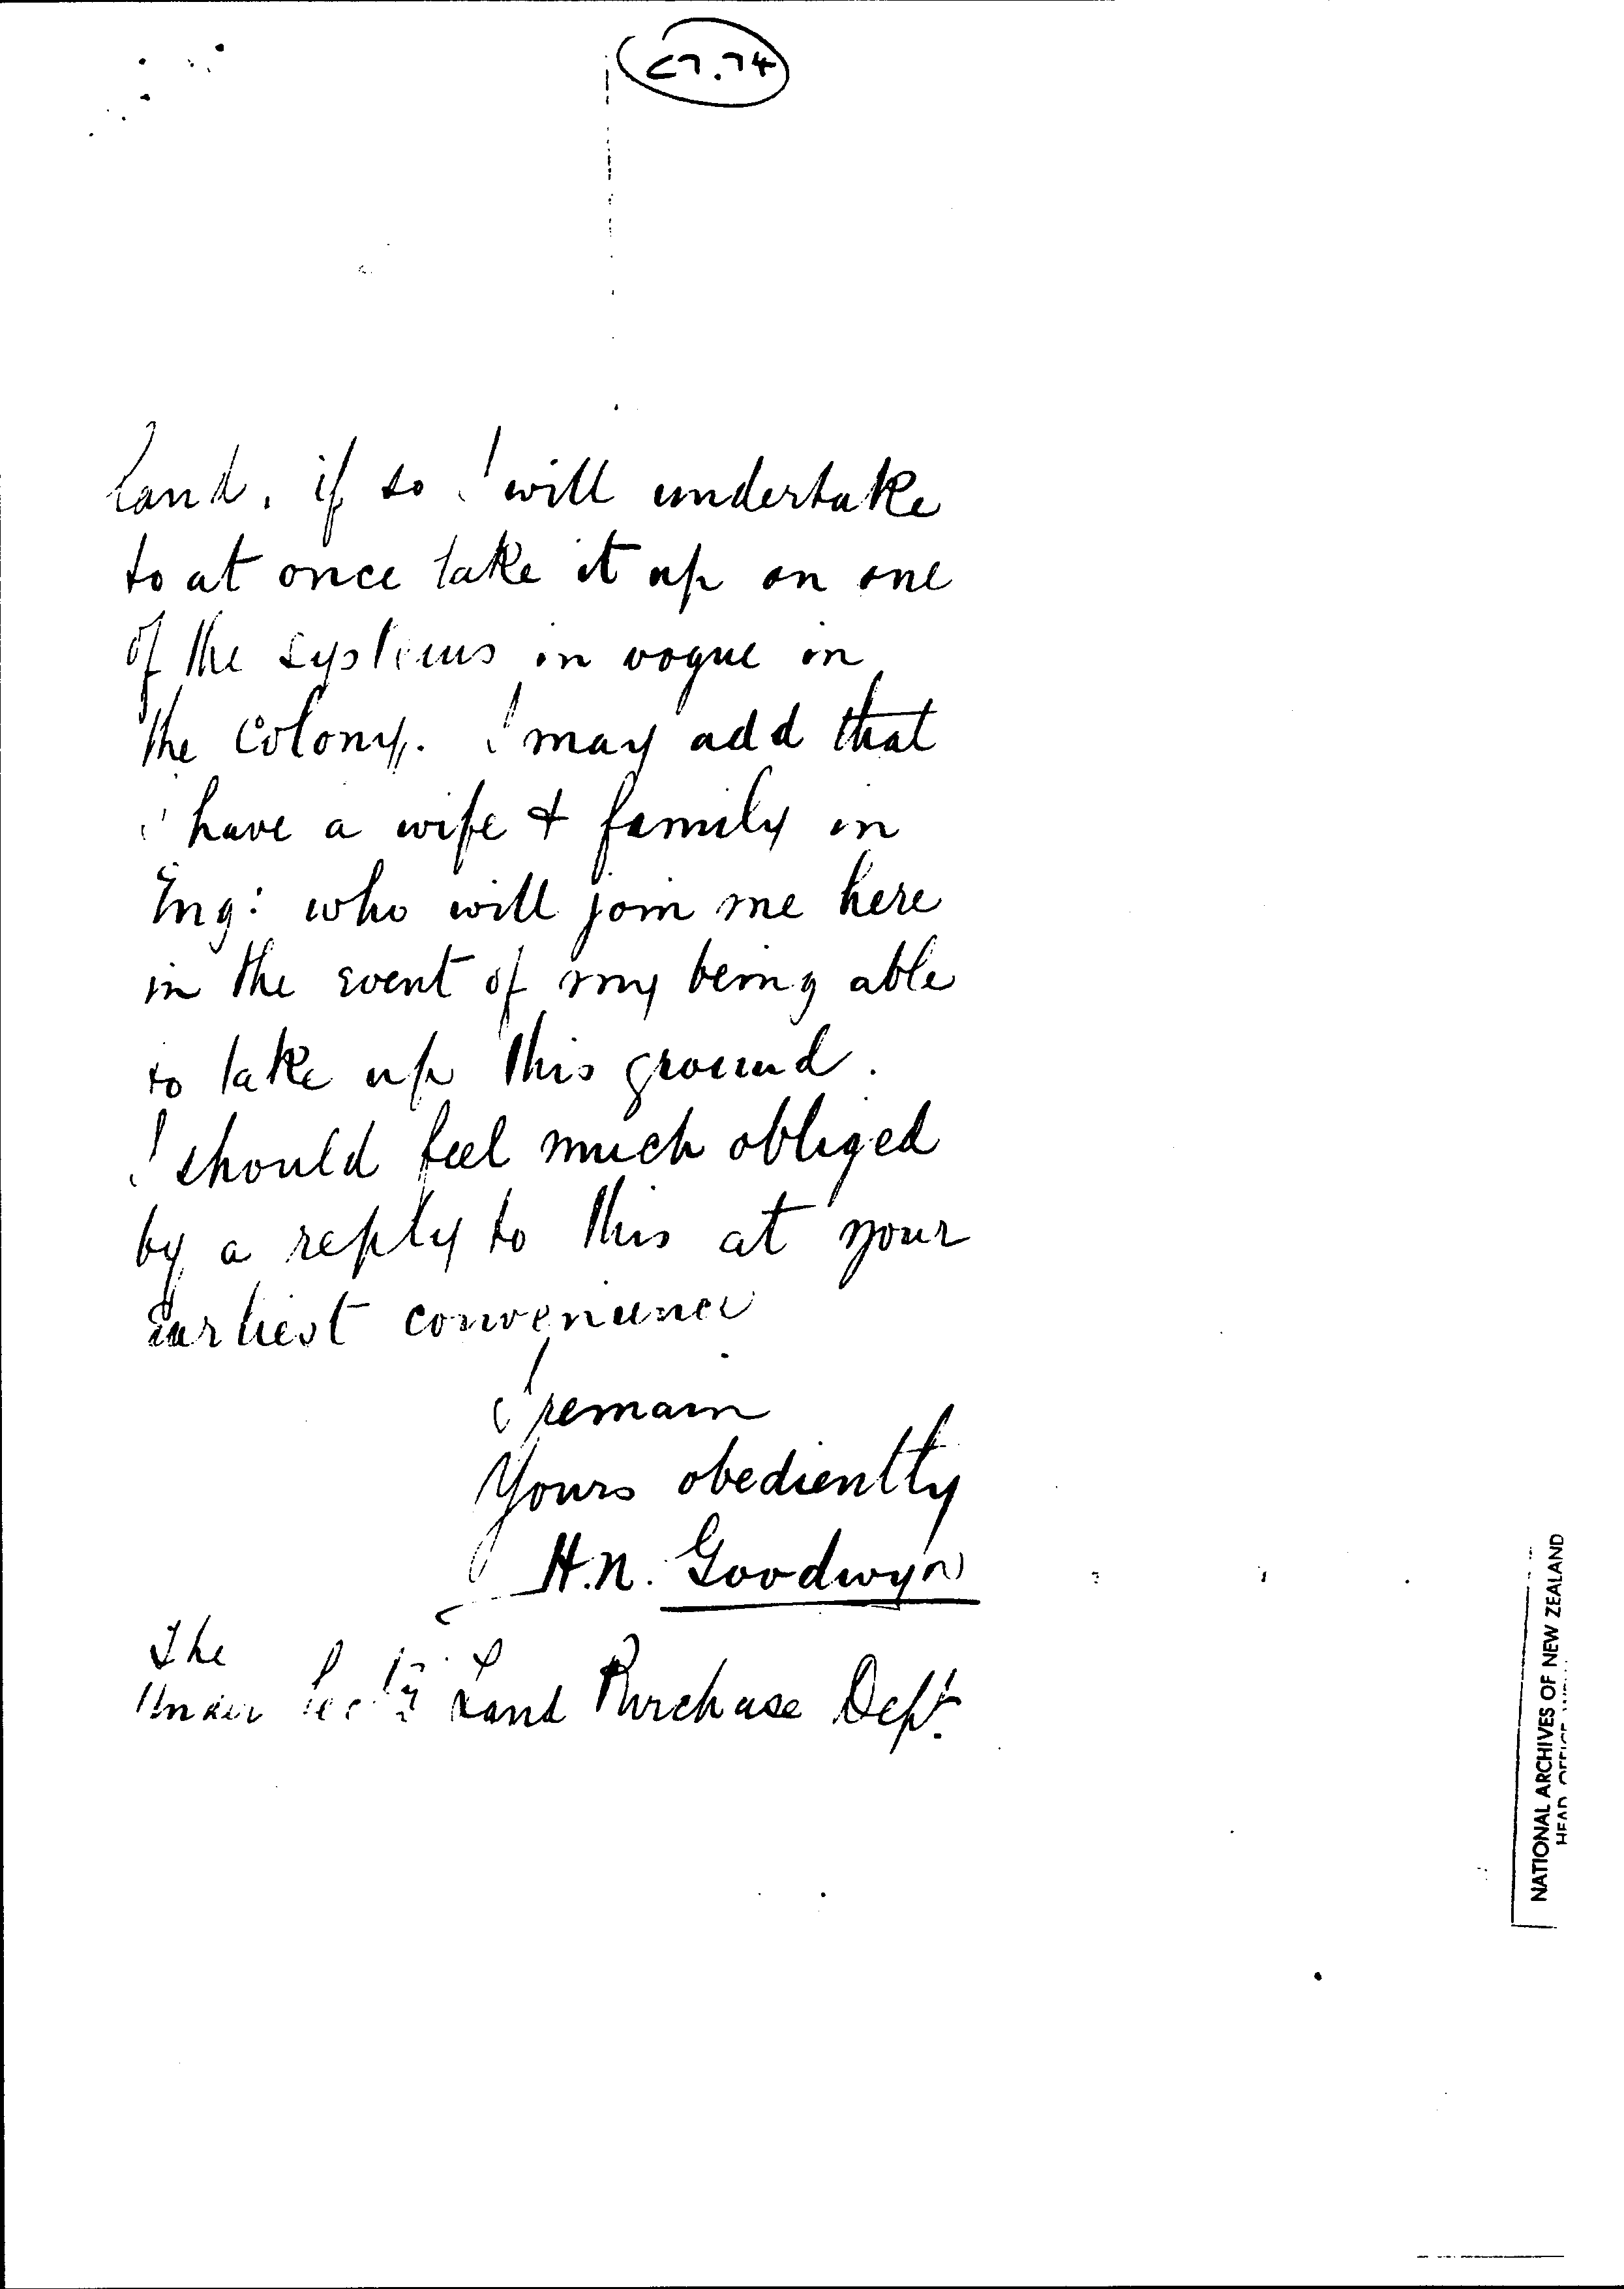 land, if so I will undertake
to at once take it up on one
of the systems in vogue in
the Colony. I may add that
I have a wife & family in
Eng: who will join me here
in the event of my being able
to take up this ground.
I should feel much obliged
by a reply to this at your
earliest convenience
I remain
Yours obediently
H.N. Goodwyn
The
Under Secty Land Purchase Dept.
NATIONAL ARCHIVES OF NEW ZEALAND
HEAD OFFICE